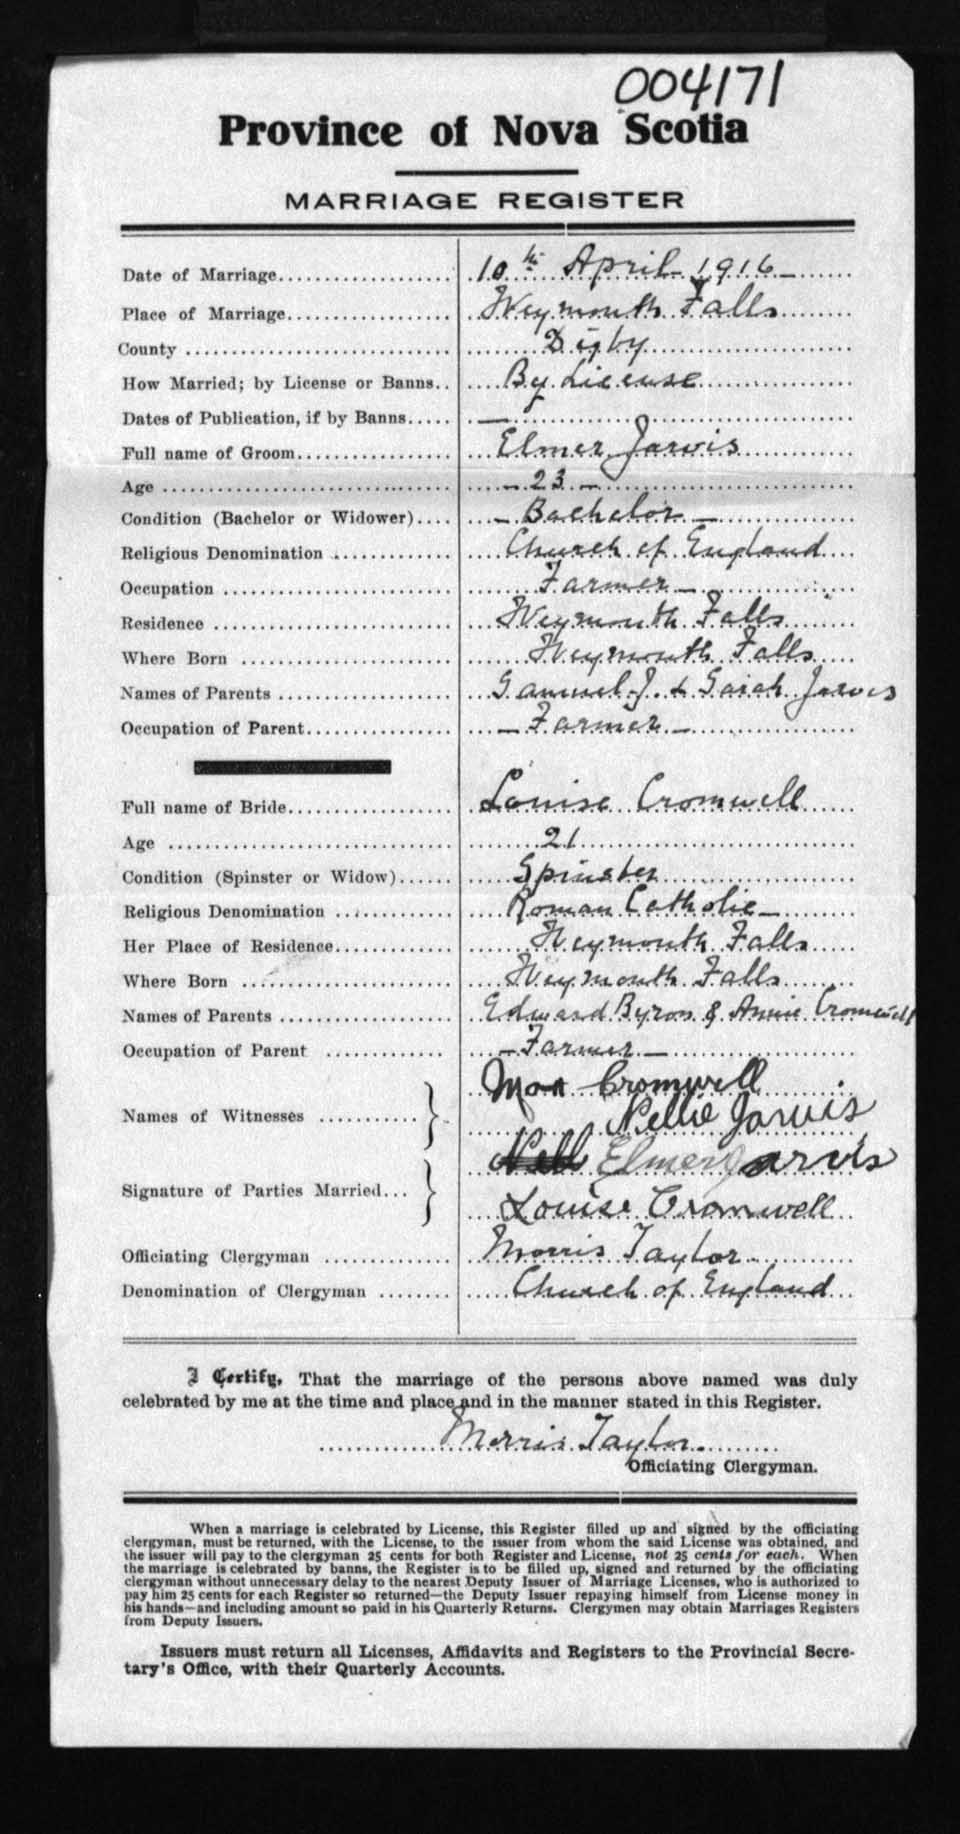 004171
Province of Nova Scotia
MARRIAGE REGISTER
Date of Marriage 10th April 1916
Place of Marriage Weymouth Falls
County Digby
How Married; by License or Banns By License
Dates of Publication, if by Banns —
Full name of Groom Elmer Jarvis
Age — 23 —
Condition (Bachelor or Widower) — Bachelor —
Religious Denomination Church of England
Occupation Farmer —
Residence Weymouth Falls
Where Born Weymouth Falls
Names of Parents Samuel J. & Sarah Jarvis
Occupation of Parent — Farmer —
Full name of Bride Louise Cromwell
Age 21
Condition (Spinster or Widow) Spinster
Religious Denomination Roman Catholic —
Her Place of Residence Weymouth Falls
Where Born Weymouth Falls
Names of Parents Edward Byron & Annie Cromwell
Occupation of Parent — Farmer —
Cromwell
Names of Witnesses Nellie Jarvis
Elmer Jarvis
Signature of Parties Married
Louise Cromwell
Officiating Clergyman Morris Taylor
Denomination of Clergyman Church of England
I Certify, That the marriage of the persons above named was duly
celebrated by me at the time and place and in the manner stated in this Register.
Morris Taylor
Officiating Clergyman.
When a marriage is celebrated by License, this Register filled up and signed by the officiating
clergyman, must be returned, with the License, to the issuer from whom the said License was obtained, and
the issuer will pay to the clergyman 25 cents for both Register and License, not 25 cents for each. When
the marriage is celebrated by banns, the Register is to be filled up, signed and returned by the officiating
clergyman without unnecessary delay to the nearest Deputy Issuer of Marriage Licenses, who is authorized to
pay him 25 cents for each Register so returned—the Deputy Issuer repaying himself from License money in
his hands—and including amount so paid in his Quarterly Returns. Clergymen may obtain Marriages Registers
from Deputy Issuers.
Issuers must return all Licenses, Affidavits and Registers to the Provincial Secre-
tary's Office, with their Quarterly Accounts.